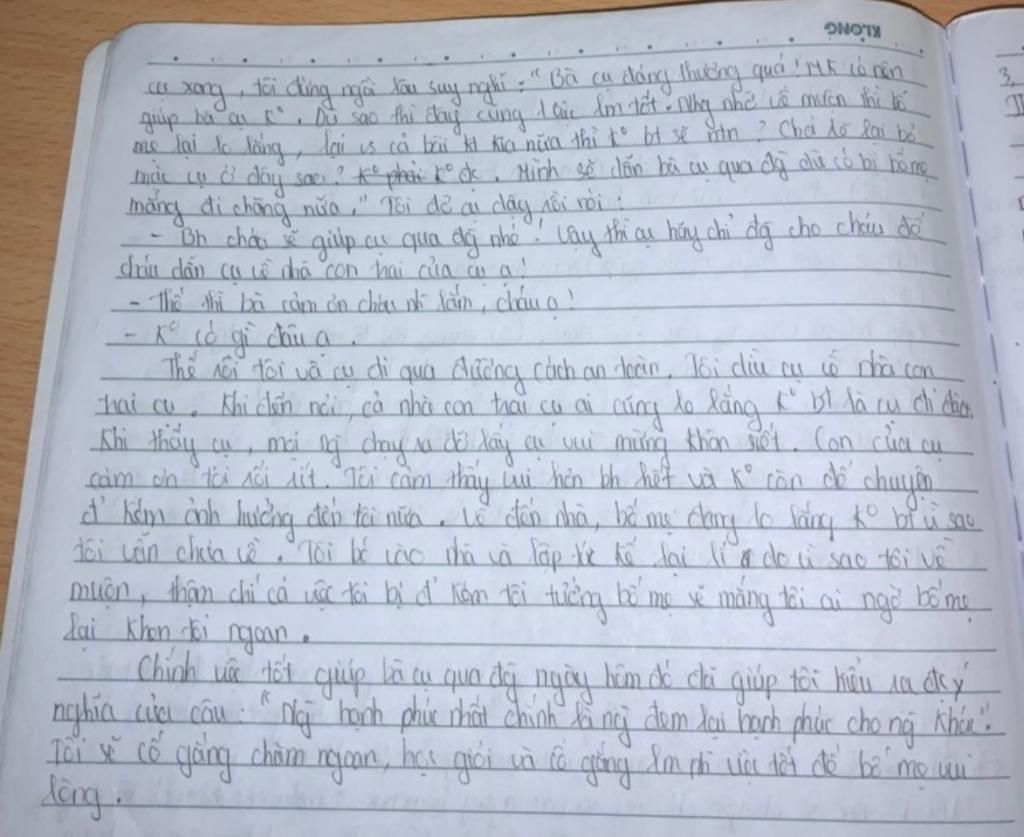 KLONG
cụ xong, tôi đứng ngồi lâu suy nghĩ: "Bà cụ đáng thương quá! Mk có nên
giúp bà cụ k°. Dù sao thì đây cũng 1 việc lm tốt. Nhg nhỡ về muộn thì bố
mẹ lại lo lắng, lại vs cả bài kt kia nữa thì k° bt sẽ ntn? Chả lẽ lại bỏ
mặc cụ ở đây sao? K° phải k° đc. Mình sẽ dẫn bà cụ qua đg dù có bị bố mẹ
mắng đi chăng nữa." Tôi đỡ cụ dậy rồi nói:
- Bh cháu sẽ giúp cụ qua đg nhé! Vậy thì cụ hãy chỉ đg cho cháu để
cháu dẫn cụ về nhà con trai của cụ ạ!
- Thế thì bà cảm ơn cháu nh lắm, cháu ạ!
- K° có gì đâu ạ.
Thế rồi tôi và cụ đi qua đường cách an toàn. Tôi dìu cụ về nhà con
trai cụ. Khi đến nơi, cả nhà con trai cụ ai cũng lo lắng k° bt là cụ đi đâu.
Khi thấy cụ, mọi ng chạy ra đỡ lấy cụ vui mừng khôn xiết. Con của cụ
cảm ơn tôi rối rít. Tôi cảm thấy vui hơn bh hết và k° còn để chuyện
đ' kém ảnh hưởng đến tôi nữa. Về đến nhà, bố mẹ đang lo lắng k° bt vì sao
tôi vẫn chưa về. Tôi bc vào nhà và lập tức kể lại lí do vì sao tôi về
muộn, thận chí cả việc tôi bị đ' kém tôi tưởng bố mẹ sẽ mắng tôi ai ngờ bố mẹ
lại khen tôi ngoan.
Chính việc tốt giúp bà cụ qua đg ngày hôm đó đã giúp tôi hiểu ra đc ý
nghĩa của câu: "Ng hạnh phúc nhất chính là ng đem lại hạnh phúc cho ng khác".
Tôi sẽ cố gắng chăm ngoan, học giỏi và cố gắng lm nh việc tốt để bố mẹ vui
lòng.
3,